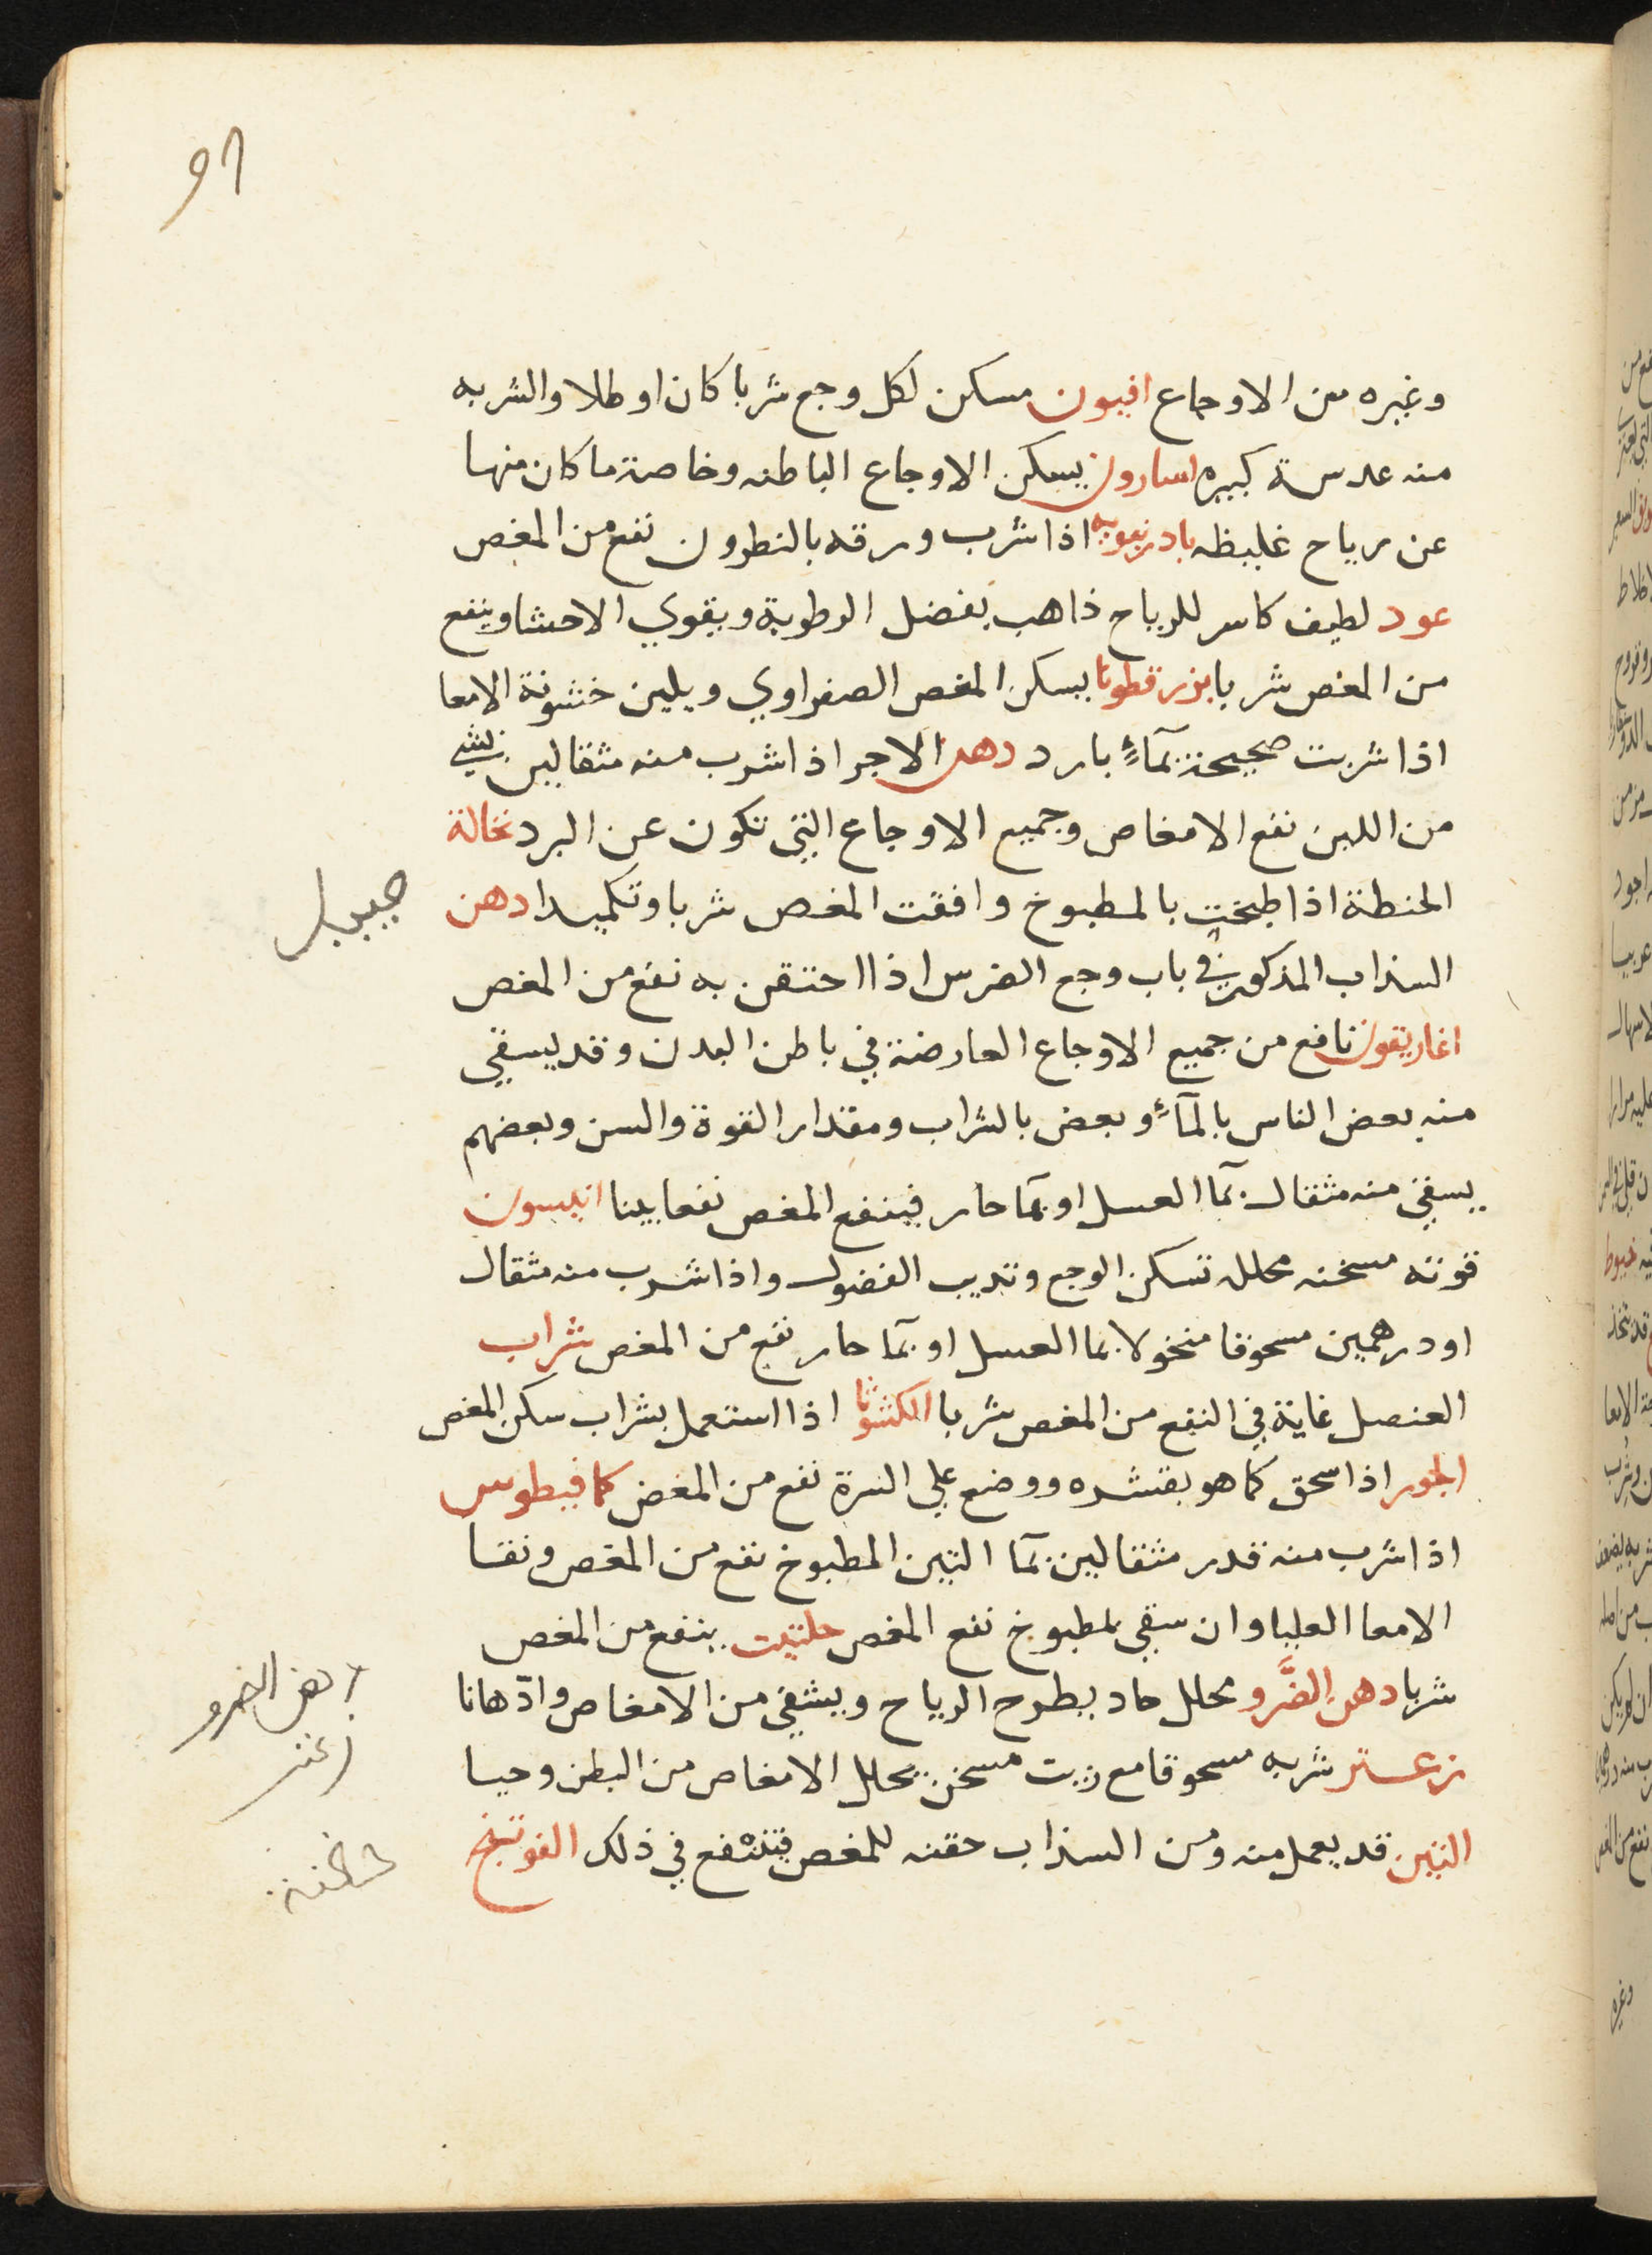 وغيره من الاوجاع افيون مسكن لكل وجع شربا كان او طلا والشربه
منه عدسة كبيره اسارون يسكن الاوجاع الباطنه وخاصة ما كان منها
عن رياح غليظه بادرنبويه اذا شرب ورقه بالنطرون نفع من المغص
عود لطيف كاسر للرياح ذاهب بفضل الرطوبة ويقوي الاحشا وينفع
من المغص شربا بزر قطونا يسكن المغص الصفراوي ويلين خشونة الامعا
اذا شربت صحيحة بمآءٍ بارد دهن الاجر اذا شرب منه مثقالين بشي
من اللبن نفع الامغاص وجميع الاوجاع التي تكون عن البرد نخالة
الحنطة اذا طبخت بالمطبوخ وافقت المغص شربا وتكميدا دهن
السذاب المذكور في باب وجع الضرس اذا احتقن به نفع من المغص
اغاريقون نافع من جميع الاوجاع العارضة في باطن البدن وقد يسقي
منه بعض الناس بالمآءِ وبعض بالشراب ومقدار القوة والسن وبعضهم
يسقي منه مثقال بمآ العسل او بمآ حار فينفع المغص نفعا بينا انيسون
قوته مسخنه محلله تسكن الوجع وتذيب الفضول واذا شرب منه مثقال
او درهمين مسحوقا منخولا بما العسل او بمآ حار نفع من المغص شراب
العنصل غاية في النفع من المغص شربا الكشوثا اذا استعمل بشراب سكن المغص
الجوز اذا سحق كما هو بقشره ووضع علي السرة نفع من المغص كمافيطوس
اذا شرب منه قدر مثقالين بمآ التين المطبوخ نفع من المغص ونقا
الامعا العليا وان سقي بمطبوخ نفع المغص حلتيت ينفع من المغص
شربا دهن الضَّرو محلل حاد يطرح الرياح ويشفي من الامغاص وادّهانا
زعتر شربه مسحوقا مع زيت مسخن يحلل الامغاص من البطن وحيا
التين قد يعمل منه ومن السذاب حقنه للمغص فينتفع في ذلك الفوتنج
دهن الضرو
زعتر